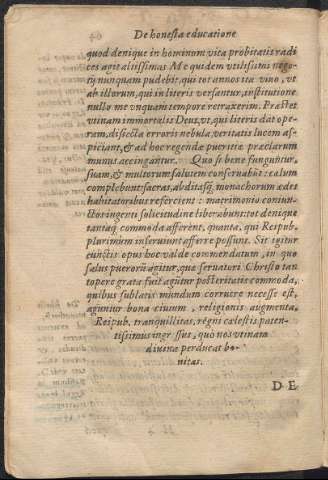 De honesta educatione
quod denique in hominum vita probitatis radi
ces agit altissimas. Me quidem vtilissimi nego-
tij nunquam pudebit, qui tot annos ita viuo, vt
ab illorum, qui in literis versantur, institutione
nullo me vnquam tempore retraxerim. Præstet
vtinam immortalis Deus, vt, qui literis dat ope-
ram, disiecta erroris nebula, veritatis lucem as-
piciant, & ad hoc regendæ pueritiæ præclarum
munus accingantur. Quo si bene funguntur,
suam, & multorum salutem conseruabũt: cælum
complebunt: sacras, abditasq; monachorum ædes
habitatoribus refercient: matrimonio coniun-
ctos ingenti solicitudine liberabunt: tot denique
tantaq; commoda afferent, quanta, qui Reipub.
plurimum inseruiunt, afferre possunt. Sit igitur
cunctis opus hoc valde commendatum, in quo
salus puerorũ agitur, quæ seruatori Christo tan
topere grata fuit: agitur posteritatis commoda,
quibus sublatis mundum corruere necesse est,
aguntur bona ciuium, religionis augmenta,
Reipub. tranquillitas, regni cælestis paten-
tissimus ingressus, quò nos vtinam
diuina perducat bo-
nitas.
D E